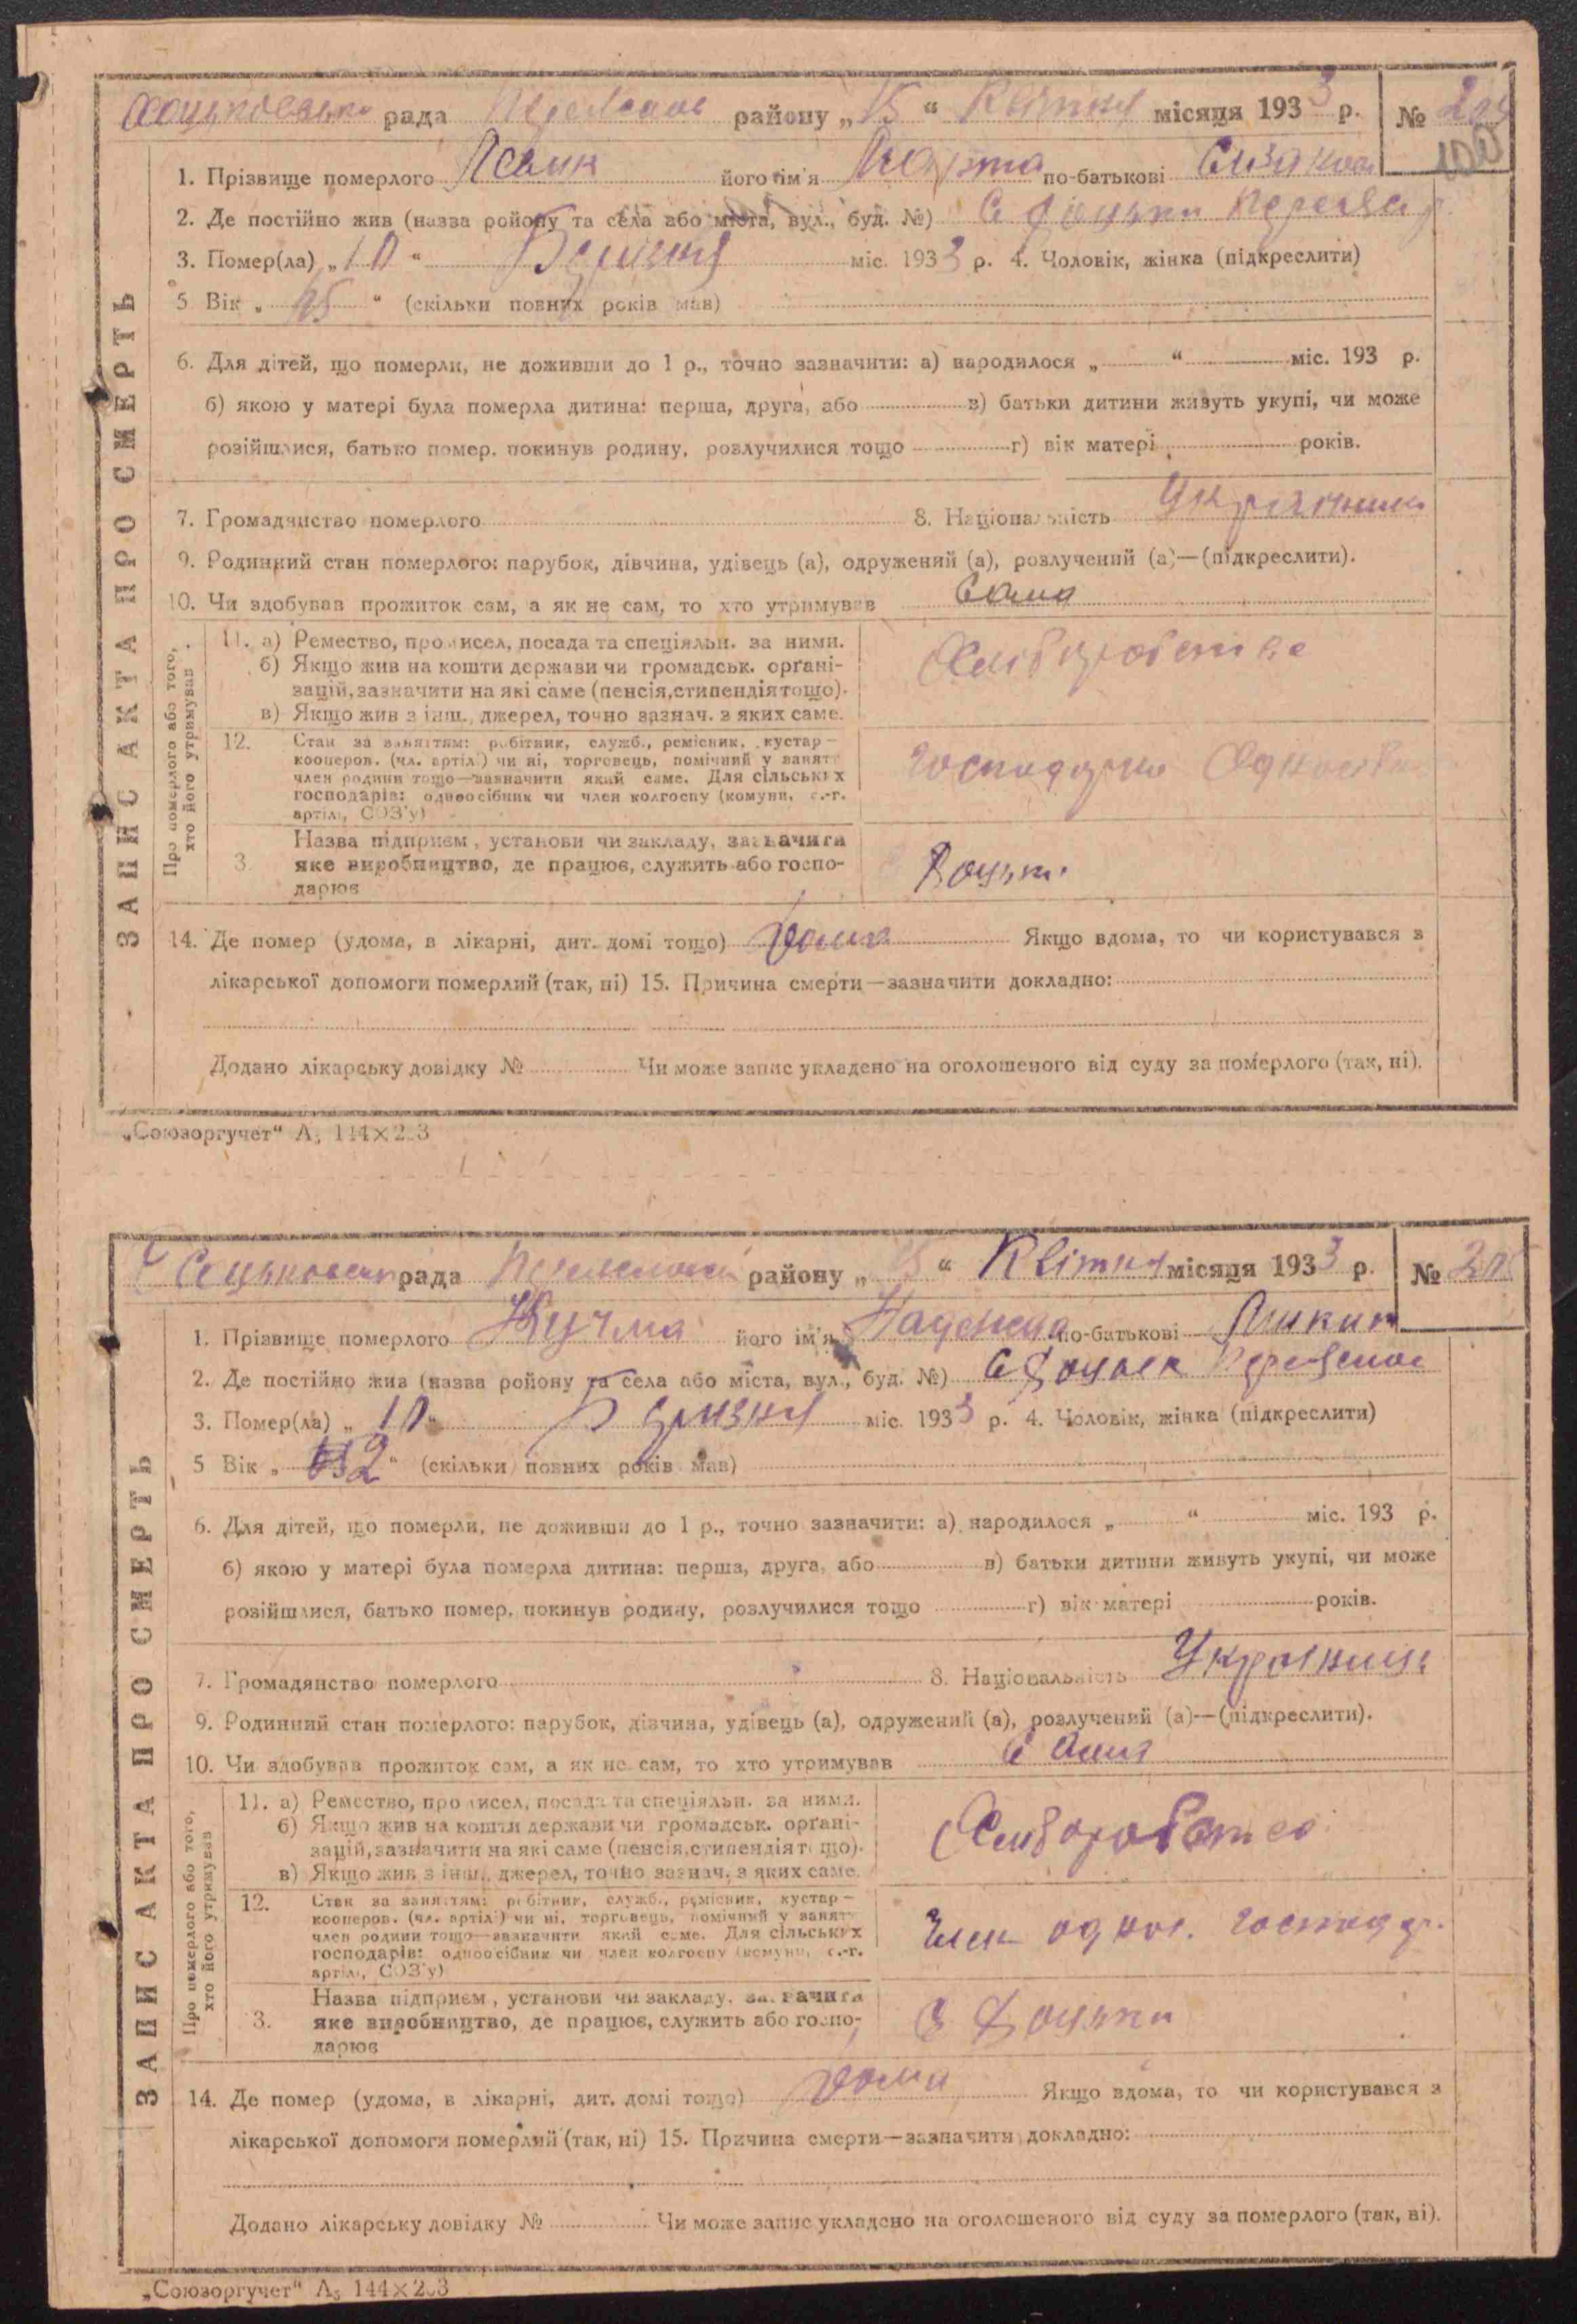 рада района „15“ Квітня місяця 1933 р. №
1. Прізвище померлого його ім'я Марта по-батькові
2. Де постійно жив (назва ройону та села або міста, вул., буд. №) С Хоцьки
3. Помер(ла) „10“ Березня міс. 1933 р. 4. Чоловік, жінка (підкреслити)
5 Вік „ “ (скільки повних років мав)
6. Для дітей, що померли, не доживши до 1 р., точно зазначити: а) народилося „ “ міс. 193 р.
б) якою у матері була померла дитина: перша, друга, або в) батьки дитини живуть укупі, чи може
розійшлися, батько помер, покинув родину, розлучилися тощо г) вік матері років.
7. Громадянство померлого 8. Національність
9. Родинний стан померлого: парубок, дівчина, удівець (а), одружений (а), розлучений (а)—(підкреслити).
10. Чи здобував прожиток сам, а як не сам, то хто утримував Сама
11. а) Ремество, промисел, посада та спеціяльн. за ними.
б) Якщо жив на кошти держави чи громадськ. орґані-
зацій, зазначити на які саме (пенсія, стипендія тощо).
в) Якщо жив з інш. джерел, точно зазнач. з яких саме.
Хліборобство
12. Стан за заняттям: робітник, служб., ремісник, кустар—
кооперов. (чл. артілі) чи ні, торговець, помічний у занятт
член родини тощо—зазначити який саме. Для сільських
господарів: одноосібник чи член колгоспу (комуни, с.-г.
артілі, СОЗ'у)
3. Назва підприєм, установи чи закладу, зазначити
яке виробництво, де працює, служить або госпо-
дарює
Про померлого або того,
хто його утримував
14. Де помер (удома, в лікарні, дит. домі тощо) Дома Якщо вдома, то чи користувався з
лікарської допомоги померлий (так, ні) 15. Причина смерти—зазначити докладно:
Додано лікарську довідку № Чи може запис укладено на оголошеного від суду за померлого (так, ні).
ЗАПИС АКТА ПРО СМЕРТЬ
„Союзоргучет“ А₅ 144×203
рада району „15“ Квітня місяця 1933 р. №
1. Прізвище померлого Кучма його ім'я Надежда по-батькові Микит
2. Де постійно жив (назва ройону та села або міста, вул., буд. №)
3. Помер(ла) „10“ Березня міс. 1933 р. 4. Чоловік, жінка (підкреслити)
5 Вік „ “ (скільки повних років мав)
6. Для дітей, що померли, не доживши до 1 р., точно зазначити: а) народилося „ “ міс. 193 р.
б) якою у матері була померла дитина: перша, друга, або в) батьки дитини живуть укупі, чи може
розійшлися, батько помер, покинув родину, розлучилися тощо г) вік матері років.
7. Громадянство померлого 8. Національність
9. Родинний стан померлого: парубок, дівчина, удівець (а), одружений (а), розлучений (а)—(підкреслити).
10. Чи здобував прожиток сам, а як не сам, то хто утримував Сама
11. а) Ремество, промисел, посада та спеціяльн. за ними.
б) Якщо жив на кошти держави чи громадськ. орґані-
зацій, зазначити на які саме (пенсія, стипендія тощо).
в) Якщо жив з інш. джерел, точно зазнач. з яких саме.
Хліборобство
12. Стан за заняттям: робітник, служб., ремісник, кустар—
кооперов. (чл. артілі) чи ні, торговець, помічний у занятт
член родини тощо—зазначити який саме. Для сільських
господарів: одноосібник чи член колгоспу (комуни, с.-г.
артілі, СОЗ'у)
Член однос. господар.
3. Назва підприєм, установи чи закладу, зазначити
яке виробництво, де працює, служить або госпо-
дарює
Хоцьки
Про померлого або того,
хто його утримував
14. Де помер (удома, в лікарні, дит. домі тощо) Дома Якщо вдома, то чи користувався з
лікарської допомоги померлий (так, ні) 15. Причина смерти—зазначити докладно:
Додано лікарську довідку № Чи може запис укладено на оголошеного від суду за померлого (так, ні).
ЗАПИС АКТА ПРО СМЕРТЬ
„Союзоргучет“ А₅ 144×203